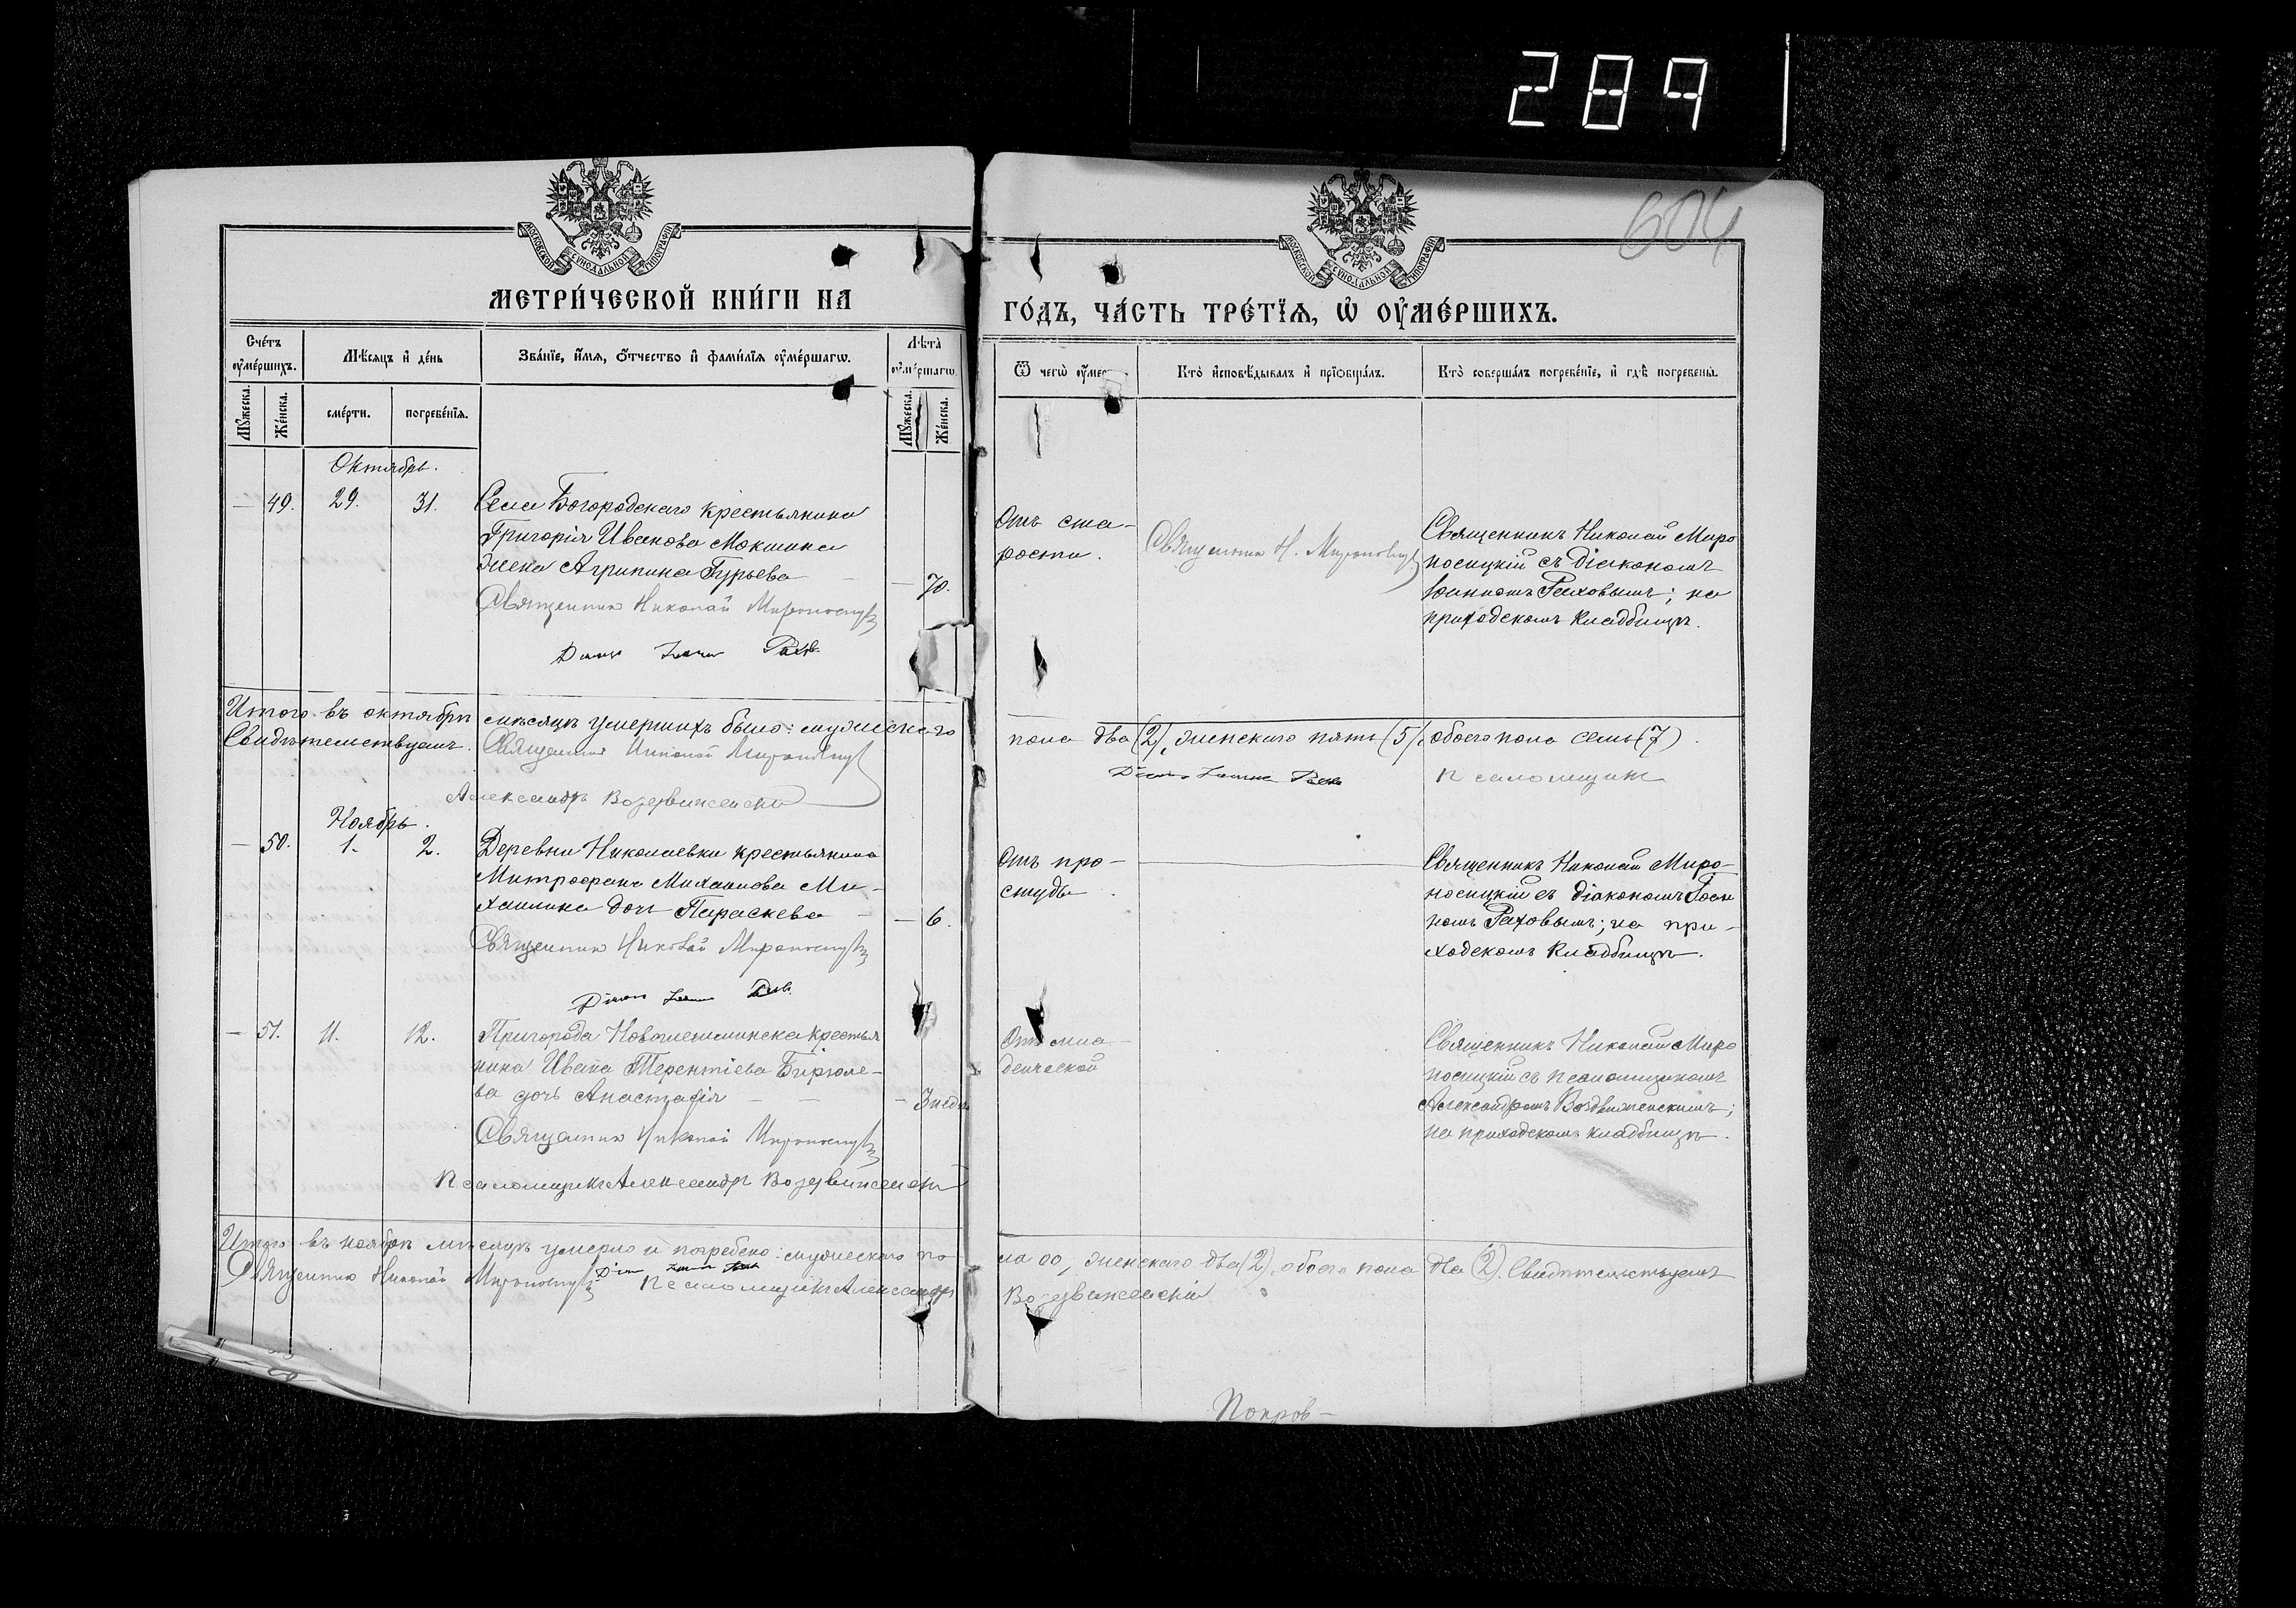 289
604
МОСКОВСКОЙ СѴНОДАЛЬНОЙ ТИПОГРАФІИ
МОСКОВСКОЙ СѴНОДАЛЬНОЙ ТИПОГРАФІИ
МЕТРИ́ЧЕСКОЙ КНИ́ГИ НА
ГО́ДЪ, ЧА́СТЬ ТРЕ́ТЇѦ, Ѡ ОУМЕ́РШИХЪ.
Сче́тъ оуме́ршихъ.
Мѣ́сяцъ и де́нь
Зва́нїе, и́мя, о́тчество и фами́лїя оуме́ршагѡ.
Лѣта̀ оуме́ршагѡ
Ѿ чегѡ̀ оуме
Кто̀ и҆сповѣ́дывалъ и҆ прїѡбща́лъ.
Кто̀ соверша́лъ погребе́нїе, и҆ гдѣ̀ погребены̀.
Мꙋ́жеска.
Же́нска.
сме́рти.
погребе́нїя.
Мꙋ́жеска.
Же́нска.
Октябрь.
— 49. 29. 31. Села Богородскаго крестьянина
Григорія Иванова Мокшина
жена Агрипина Гурьева — — 70.
Священникъ Николай Мироносицкій
Діаконъ Іоаннъ Раховъ
Отъ ста-
рости.
Священникъ Н. Мироносицкій
Священникъ Николай Миро
носицкій съ діакономъ
Іоанномъ Раховымъ; на
приходскомъ кладбищѣ.
Итого въ октябрѣ мѣсяцѣ умершихъ было: мужескаго
пола два (2), женскаго пять (5), обоего пола семь (7).
Свидѣтельствуемъ. Священникъ Николай Мироносицкій
Діаконъ Іоаннъ Раховъ
Псаломщикъ
Александръ Воздвиженскій
Ноябрь.
— 50. 1. 2. Деревни Николаевки крестьянина
Митрофана Михаилова Ми-
хашина дочь Параскева — — 6.
Священникъ Николай Мироносицкій
Діаконъ Іоаннъ Раховъ
Отъ про-
студы.
Священникъ Николай Миро-
носицкій съ діакономъ Іоан
номъ Раховымъ; на при-
ходскомъ кладбищѣ.
— 51. 11. 12. Пригорода Новошешминска крестья
нина Ивана Терентіева Бирюле-
ва дочь Анастасія — — — 3 нед.
Священникъ Николай Мироносицкій
Псаломщикъ Александръ Воздвиженскій
Отъ мла-
денческой
Священникъ Николай Миро
носицкій съ псаломщикомъ
Александромъ Воздвиженскимъ;
на приходскомъ кладбищѣ.
Итого въ ноябрѣ мѣсяцѣ умерло и погребено: мужескаго по-
ла 00, женскаго два (2), обоего пола два (2). Свидѣтельствуемъ
Священникъ Николай Мироносицкій Діаконъ Іоаннъ Раховъ Псаломщикъ Александръ
Воздвиженскій
Покров-